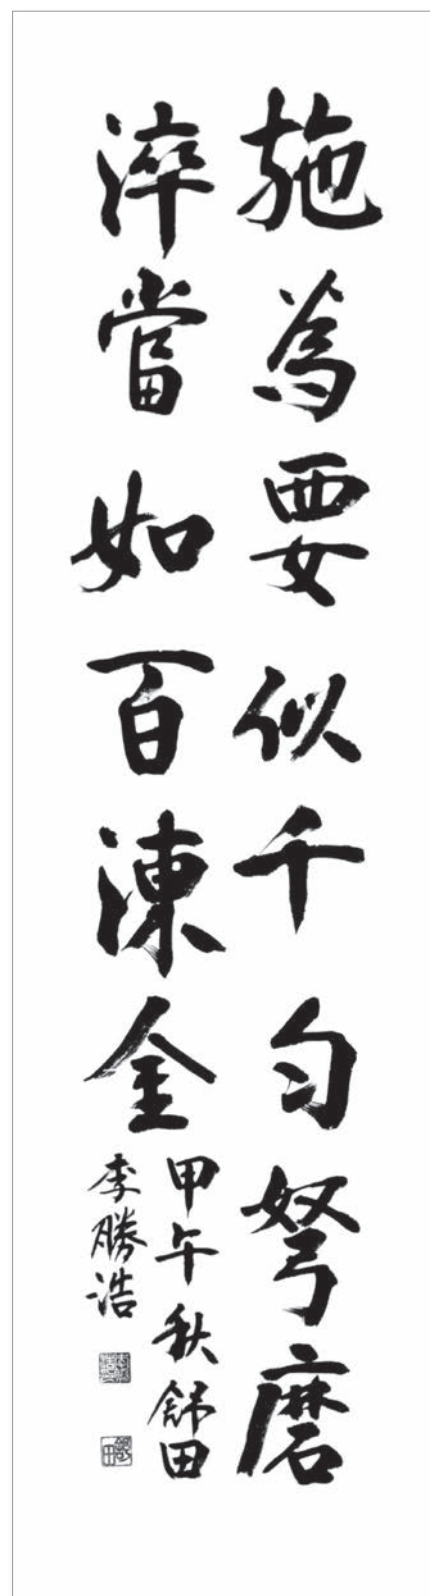 施為要似千匀弩磨
淬當如百湅金
甲午秋 田
李勝浩